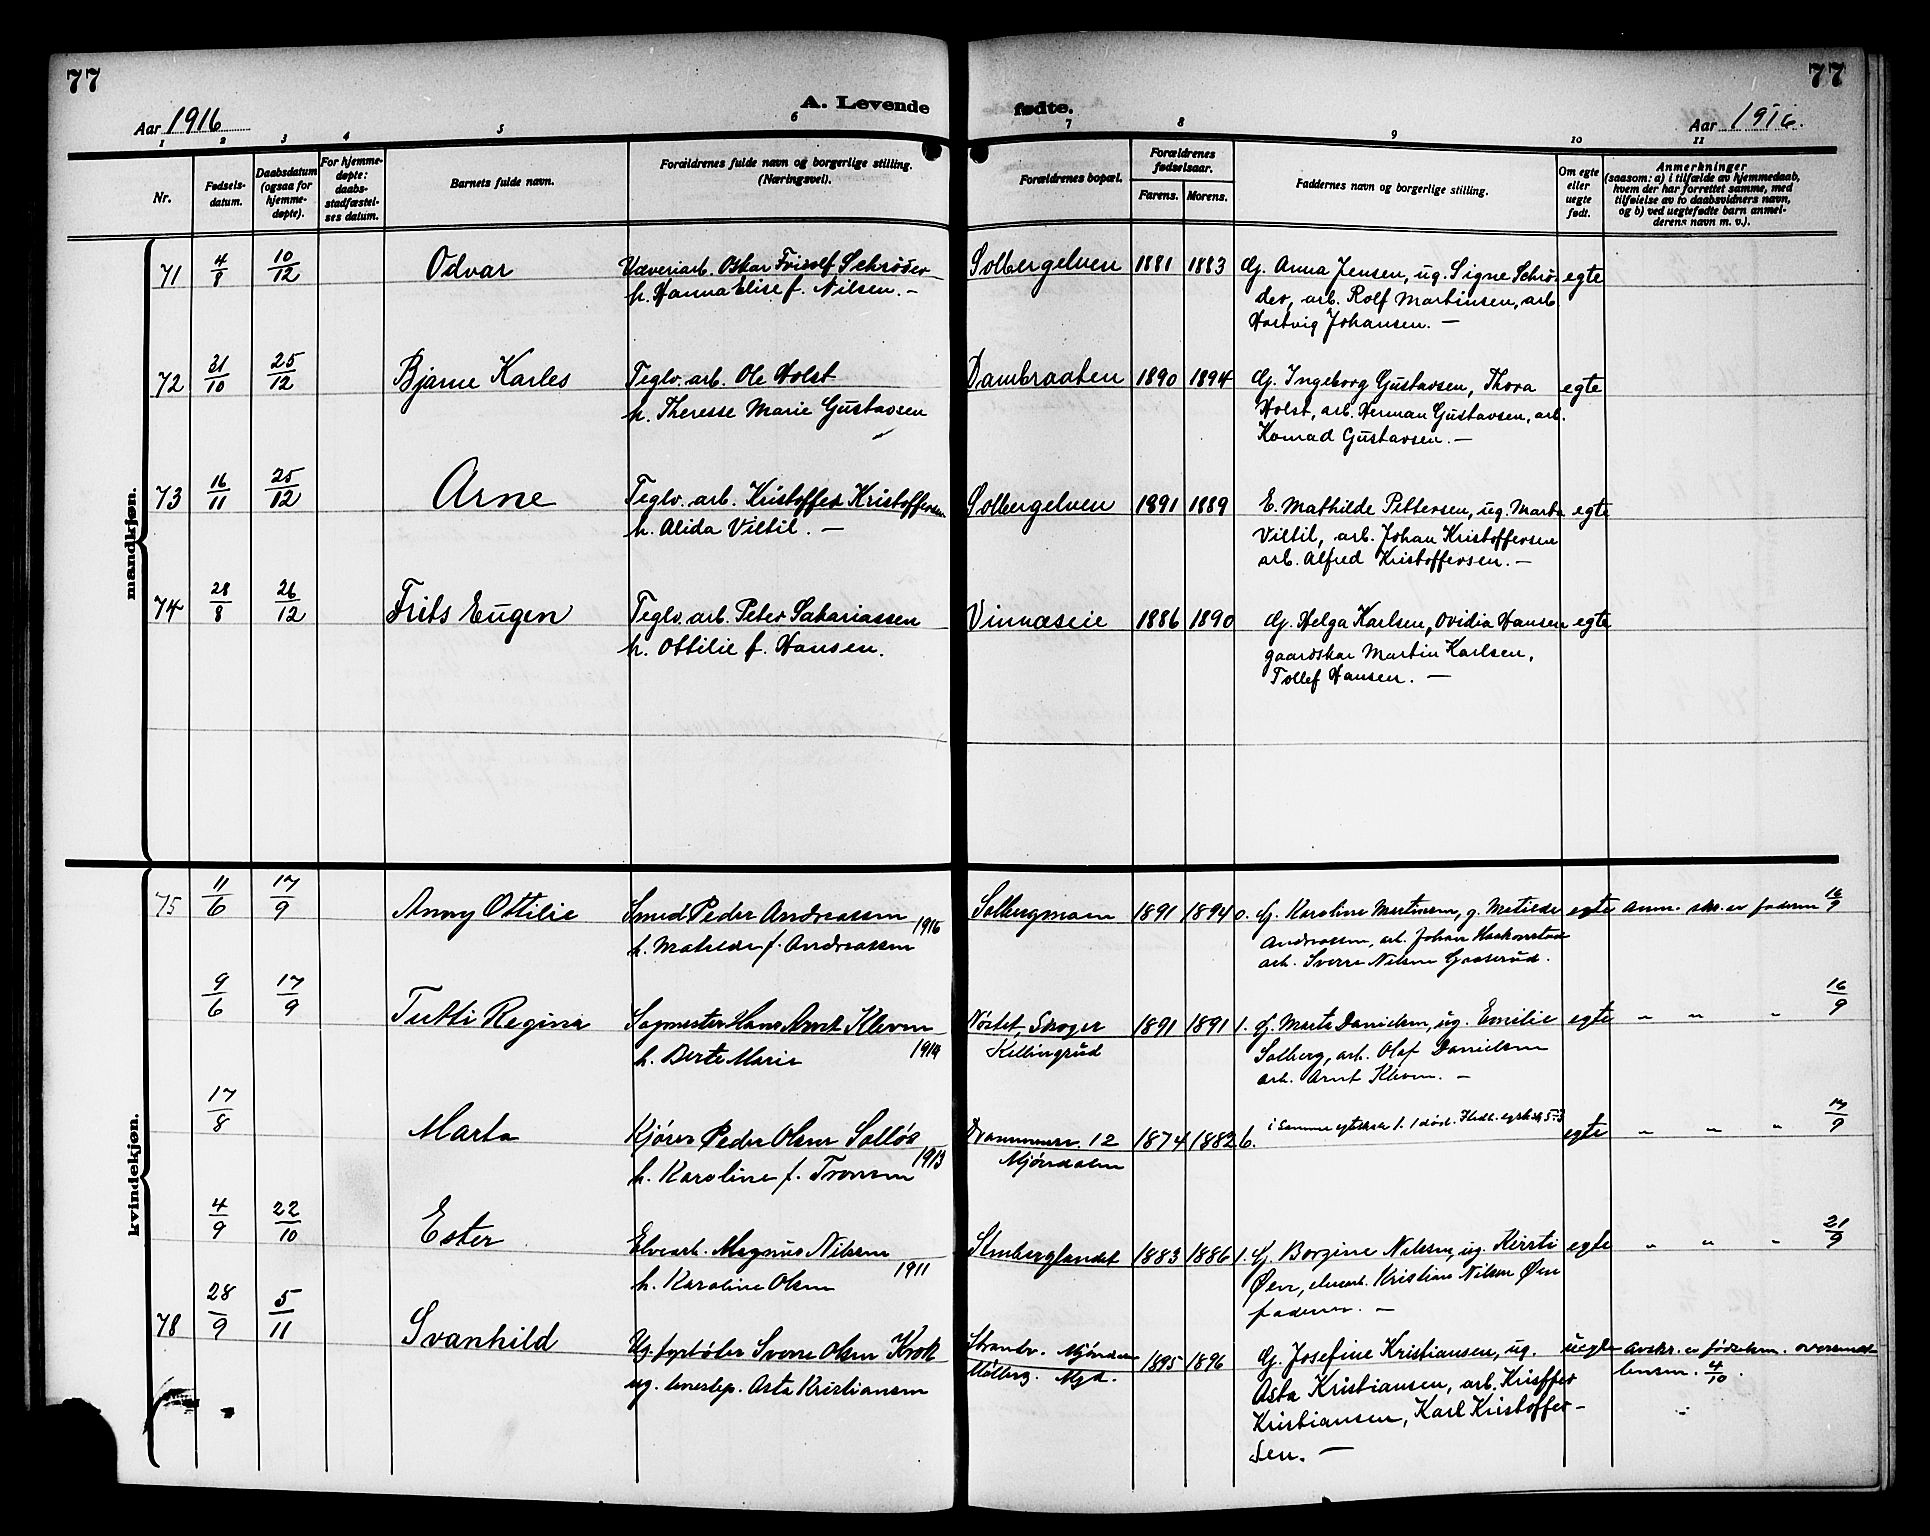 77
77
A. Levende fødte.
Aar 1916
Aar 1916.
1 2 3 4 5 6 7 8 9 10 11
Nr.
Fødsels-
datum.
Daabsdatum
(ogsaa for
hjemme-
døpte).
For hjemme-
døpte:
daabs-
stadfæstel-
ses datum.
Barnets fulde navn.
Forældrenes fulde navn og borgerlige stilling.
(Næringsvei).
Forældrenes bopæl.
Forældrenes
fødselsaar.
Farens. Morens.
Faddernes navn og borgerlige stilling.
Om egte
eller
uegte
født.
Anmerkninger
(saasom: a) i tilfælde av hjemmedaab,
hvem der har forrettet samme, med
tilføielse av to daabsvidners navn,
og b) ved uegtefødte barn anmel-
derens navn m. v.).
mandkjøn.
71 4/8 10/12 Odvar Væveriarb. Oskar Fritjof Schrøder Solbergelven 1881 1883 Gj. Anna Jensen, ug. Signe Schrø- egte
h. Hanna Elise f. Nilsen. — der, arb. Rolf Martinsen, arb.
Hartvig Johansen. —
72 31/10 25/12 Bjarne Karles Teglv. arb. Ole Holst Dambraaten 1890 1894 Gj. Ingeborg Gustavsen, Thora egte
h. Theresse Marie Gustavsen Holst, arb. Herman Gustavsen, arb.
Konrad Gustavsen. —
73 16/11 25/12 Arne Teglv. arb. Kristoffer Kristoffersen Solbergelven 1891 1889 E. Mathilde Pettersen, ug. Marta egte
h. Alida Viltil. — Viltil, arb. Johan Kristoffersen
arb. Alfred Kristoffersen. —
74 28/8 26/12 Frits Eugen Teglv. arb. Peter Sakariassen Vinnæseie 1886 1890 Gj. Helga Karlsen, Ovidia Hansen egte
h. Ottilie f. Hansen. gaardskar Martin Karlsen,
Tollef Hansen. —
kvindekjøn.
75 11/6 17/9 Anny Ottilie Smed Peder Andreassen 1916 Solbergmoen 1891 1894 0. Gj. Karoline Martinsen, g. Matilde egte anm. skr. av faderen 16/9
h. Matilde f. Andreassen Andreassen, arb. Johan
arb. Sverre Nilsen Gaaserud.
9/6 17/9 Tutti Regine Sagmester Hans Arnt Kleven 1914 Nøstet, Skoger 1891 1891 1. Gj. Marta Danielsen, ug. Emilie egte " " " 16/9
h. Berte Marie Killingrud Solberg, arb. Olaf Danielsen
arb. Arnt Kleven. —
17/8 Marta Kjører Peder Olsen Solløs 1913 Drammensv. 12 1874 1882 6. i samme egteskab 1. 1 død. egte " " " 17/9
h. Karoline f. Tronsen Mjøndalen
4/9 22/10 Ester Elvearb. Magnus Nilsen 1911 Stenberglandet 1883 1886 1. Gj. Borgine Nilsen, ug. Kirsti egte " " " 21/9
h. Karoline Olsen Øen, elvearb. Kristian Nilsen Øen
faderen. —
78 28/9 5/11 Svanhild Ug. Sverre Olsen Krok Strandv. Mjøndalen 1895 1896 Gj. Josefine Kristiansen, ug. uegte avskr. av fødselsm. oversendt
ug. Asta Kristiansen Mølberg. Mjd. Asta Kristiansen, arb. Kristoffer lensm. 4/10.
Kristiansen, Karl Kristoffer-
sen. —